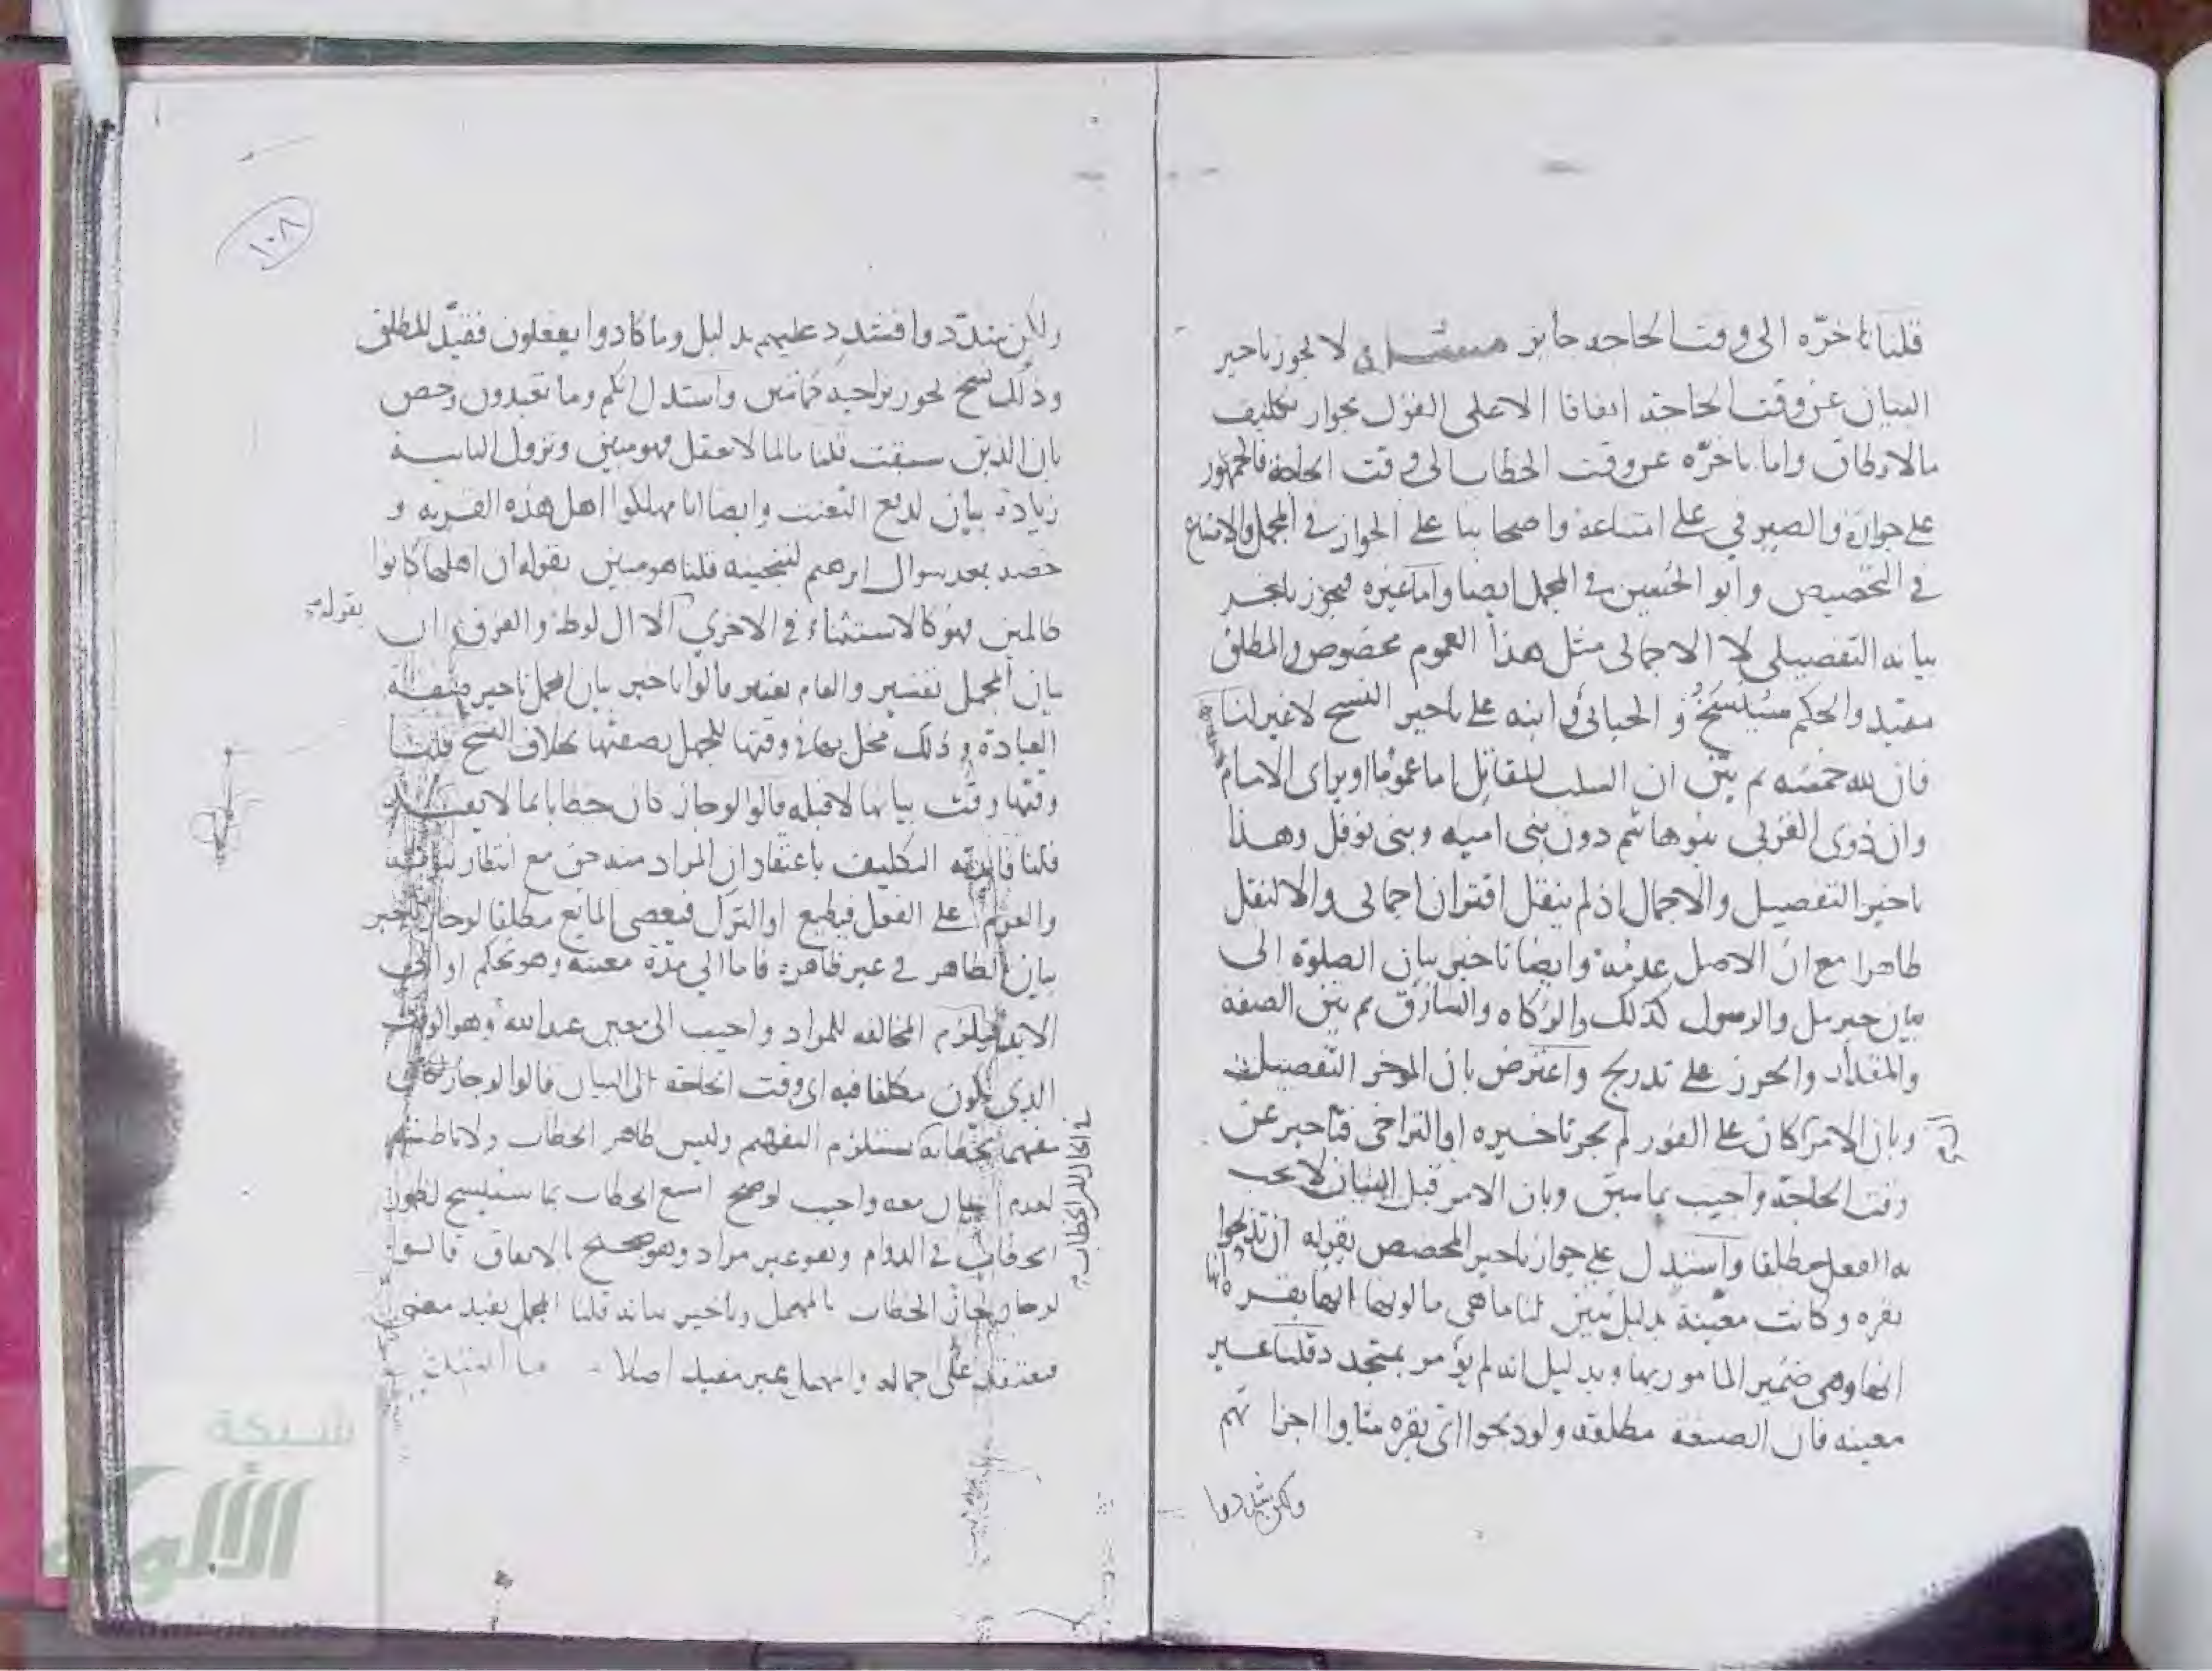 قلنا تاخره الى وقت الحاجه جايز مسئلة لا يجوز تاخير
البيان عن وقت الحاجة اتفاقا الا على القول بجواز تكليف
مالا يطاق واما تاخره عن وقت الخطاب الى وقت الحاجة فالجمهور
على جوازه والصيرفي على امتناعه واصحابنا على الجواز في المجمل والامتناع
في التخصيص وابو الحسين في المجمل ايضا واما غيره فيجوز تاخير
بيانه التفصيلي لا الاجمالي مثل هذا العموم مخصوص والمطلق
مقيد والحكم سينسخ والجبائي وابنه على تاخير النسخ لا غير لنا
فان لله خمسه ثم بين ان السلب للقاتل اما عموما او براى الامام
وان ذوى القربى بنو هاشم دون بنى اميه وبنى نوفل وهذا
تاخير التفصيل والاجمال اذ لم ينقل اقتران اجمالى والا لنقل
ظاهرا مع ان الاصل عدمه وايضا تاخير بيان الصلوة الى
بيان جبريل والرسول كذلك والزكاه والسارق ثم بين الصفه
والمقدار والحرز على تدريج واعترض بان الموخر التفصيلى
وبان الامر كان على الفور لم يجز تاخيره او التراخى فتاخير عن
وقت الحاجة واجيب بما سبق وبان الامر قبل البيان لا يجب
به الفعل مطلقا واستدل على جواز تاخير المخصص بقوله ان تذبحوا
بقره وكانت معينة بدليل يبين لنا ما هى ما لونها انها بقره
انها وهى ضمير المامور بها وبدليل انه لم يؤمر بمتجدد قلنا غير
معينه فان الصيغه مطلقة ولو ذبحوا اى بقره شاءوا اجزاتهم
ولكن شددوا
١٠٨
ولكن شددوا فشدد عليهم بدليل وما كادوا يفعلون فقيد المطلق
وذلك نسخ يجوز تراخيه واستدل انكم وما تعبدون وخص
بان الذين سبقت قلنا ما لما لا يعقل فهو مبين ونزول الثانيه
زيادة بيان لدفع التعنت وايضا انا مهلكوا اهل هذه القريه و
خصه بعد سوال ابرهيم لننجينه قلنا هو مبين بقوله ان اهلها كانوا
ظالمين فهو كالاستثناء في الاخرى الا ال لوط والفرق
بقوله
بيان المجمل تفسير والعام تغيير قالوا تاخير بيان المجمل تاخير صفة
العبادة وذلك مخل بها في وقتها للجهل بصفتها بخلاف النسخ قلنا
وقتها وقت بيانها لا قبله قالوا لو جاز كان خطابا بما لا يفهم
قلنا فايدته التكليف باعتقاد ان المراد منه حق مع انتظار
والعزم على الفعل فيطيع او الترك فيعصى المانع مطلقا لو جاز تاخير
بيان الظاهر في غير ظاهره فاما الى مدة معينه وهو تحكم او الى
الابد فيلزم المخالفه للمراد واجيب الى معين عند الله وهو الوقت
الذى يكون مكلفا فيه اى وقت الحاجة الى البيان قالوا لو جاز كان
مفهما بخطابه يستلزم التفهيم وليس ظاهر الخطاب ولا باطنه
لعدم البيان معه واجيب لو صح امتنع الخطاب بما سينسخ لظهور
الخطاب في الدوام وهو غير مراد وهو صحيح بالاتفاق قالوا
لو جاز لجاز الخطاب بالمهمل وتاخير بيانه قلنا المجمل يفيد معنى
على اجماله والمهمل غير مفيد اصلا
شبكة
الألوكة